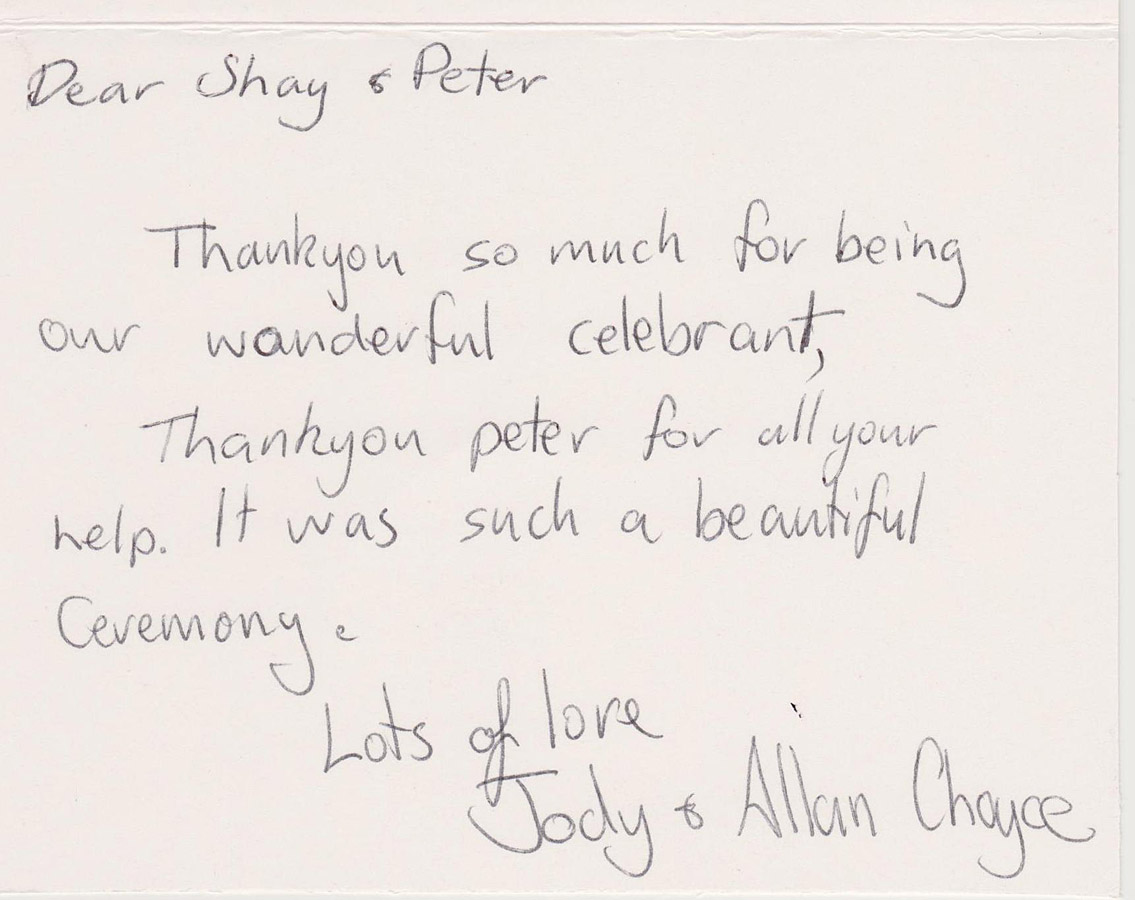 Dear Shay & Peter
Thankyou so much for being
our wonderful celebrant,
Thankyou peter for all your
help. It was such a beautiful
Ceremony.
Lots of love
Jody & Allan Chayce